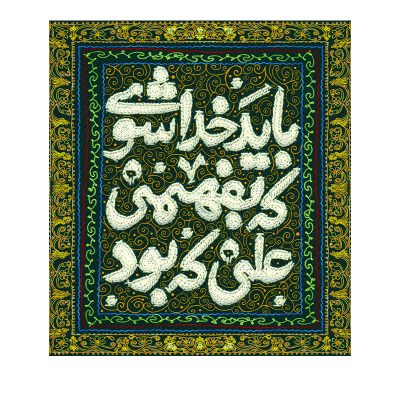 باید خدا شوی
که بفهمی
علی که بود